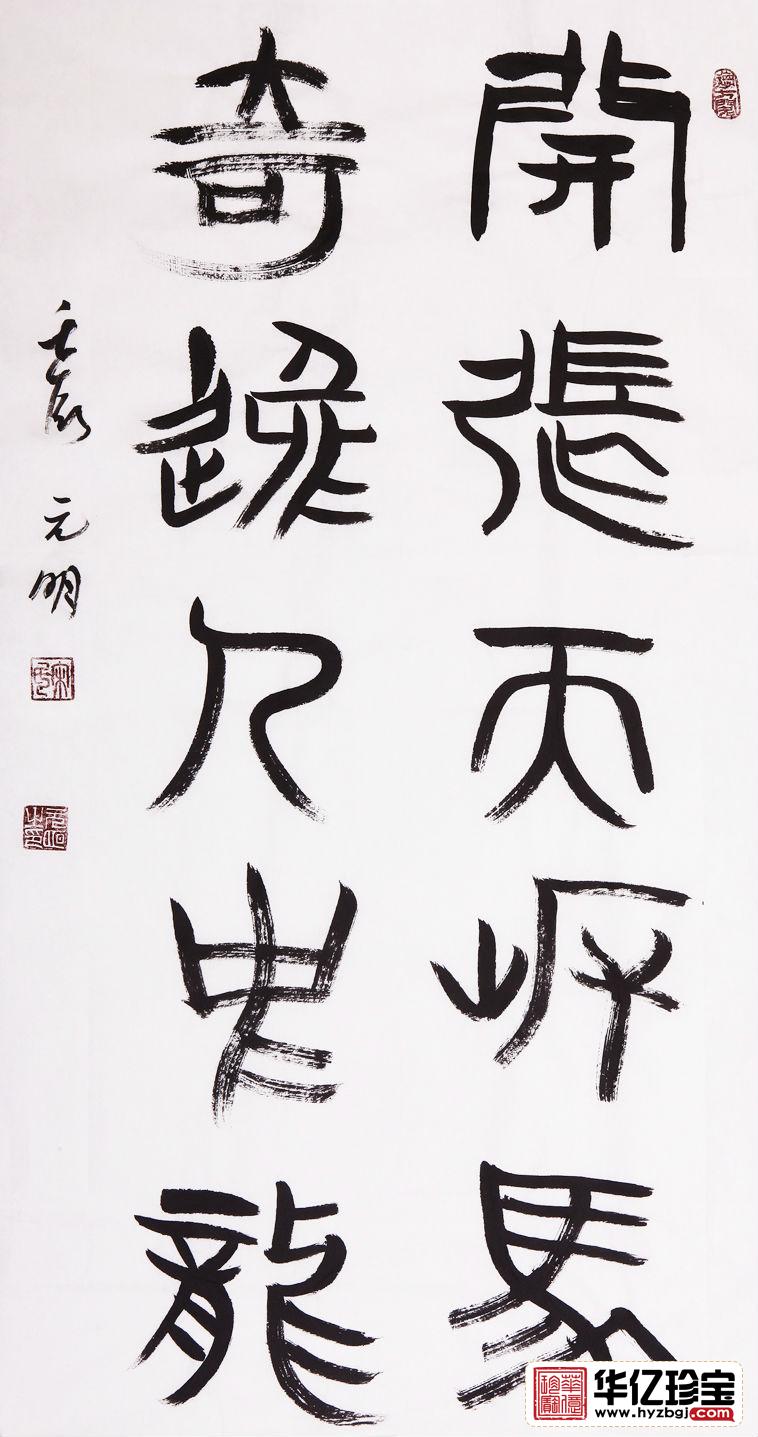 開張天岸馬
奇逸人中龍
壬辰 元明
華億珍寶
华亿珍宝
www.hyzbgj.com